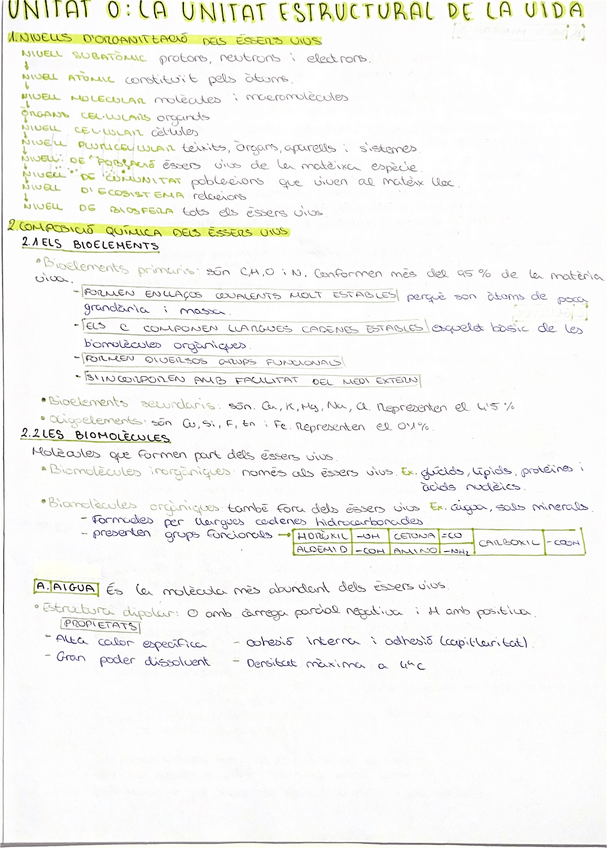 UNITAT 0: LA UNITAT ESTRUCTURAL DE LA VIDA
1. NIVELLS D'ORGANITZACIÓ DELS ÉSSERS VIUS
NIVELL SUBATÒMIC protons, neutrons i electrons.
NIVELL ATÒMIC constituït pels àtoms.
NIVELL MOLECULAR molècules i macromolècules
ÒRGANS CEL·LULARS organuls
NIVELL CEL·LULAR cèl·lules
NIVELL PLURICEL·LULAR teixits, òrgans, aparells i sistemes
NIVELL DE POBLACIÓ éssers vius de la mateixa espècie
NIVELL DE COMUNITAT poblacions que viuen al mateix lloc.
NIVELL D'ECOSISTEMA relacions
NIVELL DE BIOSFERA tots els éssers vius
2. COMPOSICIÓ QUÍMICA DELS ÉSSERS VIUS
2.1 ELS BIOELEMENTS
• Bioelements primaris: són C, H, O i N. Conformen més del 95% de la matèria
viva.
- FORMEN ENLLAÇOS COVALENTS MOLT ESTABLES perquè son àtums de poca
grandària i massa.
- ELS C COMPONEN LLARGUES CADENES ESTABLES esquelet bàsic de les
biomolècules orgàniques.
- FORMEN DIVERSOS GRUPS FUNCIONALS
- S'INCORPOREN AMB FACILITAT DEL MEDI EXTERN
• Bioelements secundaris: són Ca, K, Mg, Na, Cl. Representen el 4'5%
• Oligoelements: són Cu, Si, F, Zn i Fe. Representen el 0'1%.
2.2 LES BIOMOLÈCULES
Molècules que formen part dels éssers vius.
• Biomolècules inorgàniques: només als éssers vius Ex. glúcids, lípids, proteïnes i
àcids nucleics.
• Biomolècules orgàniques també fora dels éssers vius Ex. aigua, sals minerals.
- Formades per llargues cadenes hidrocarbonades
- presenten grups funcionals → HIDRÒXIL -OH CETONA =CO CARBOXIL -COOH
ALDEHID -COH AMINO -NH₂
A. AIGUA És la molècula més abundant dels éssers vius.
• Estrutura dipolar: O amb càrrega parcial negativa i H amb positiva.
PROPIETATS
- Alta calor específica - cohesió interna i adhesió (capil·laritat).
- Gran poder dissolvent - Densitat màxima a 4ºC